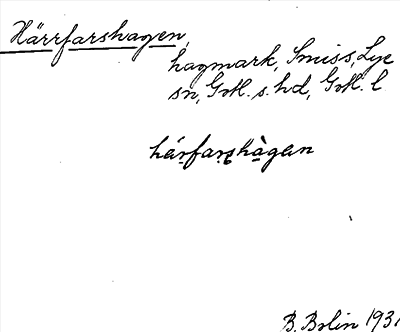 Härrfarshagen,
hagmark, Smiss, Lye
sn, Gotl. s. hd, Gotl. l
hárfarshàgan
B. Bolin 1931